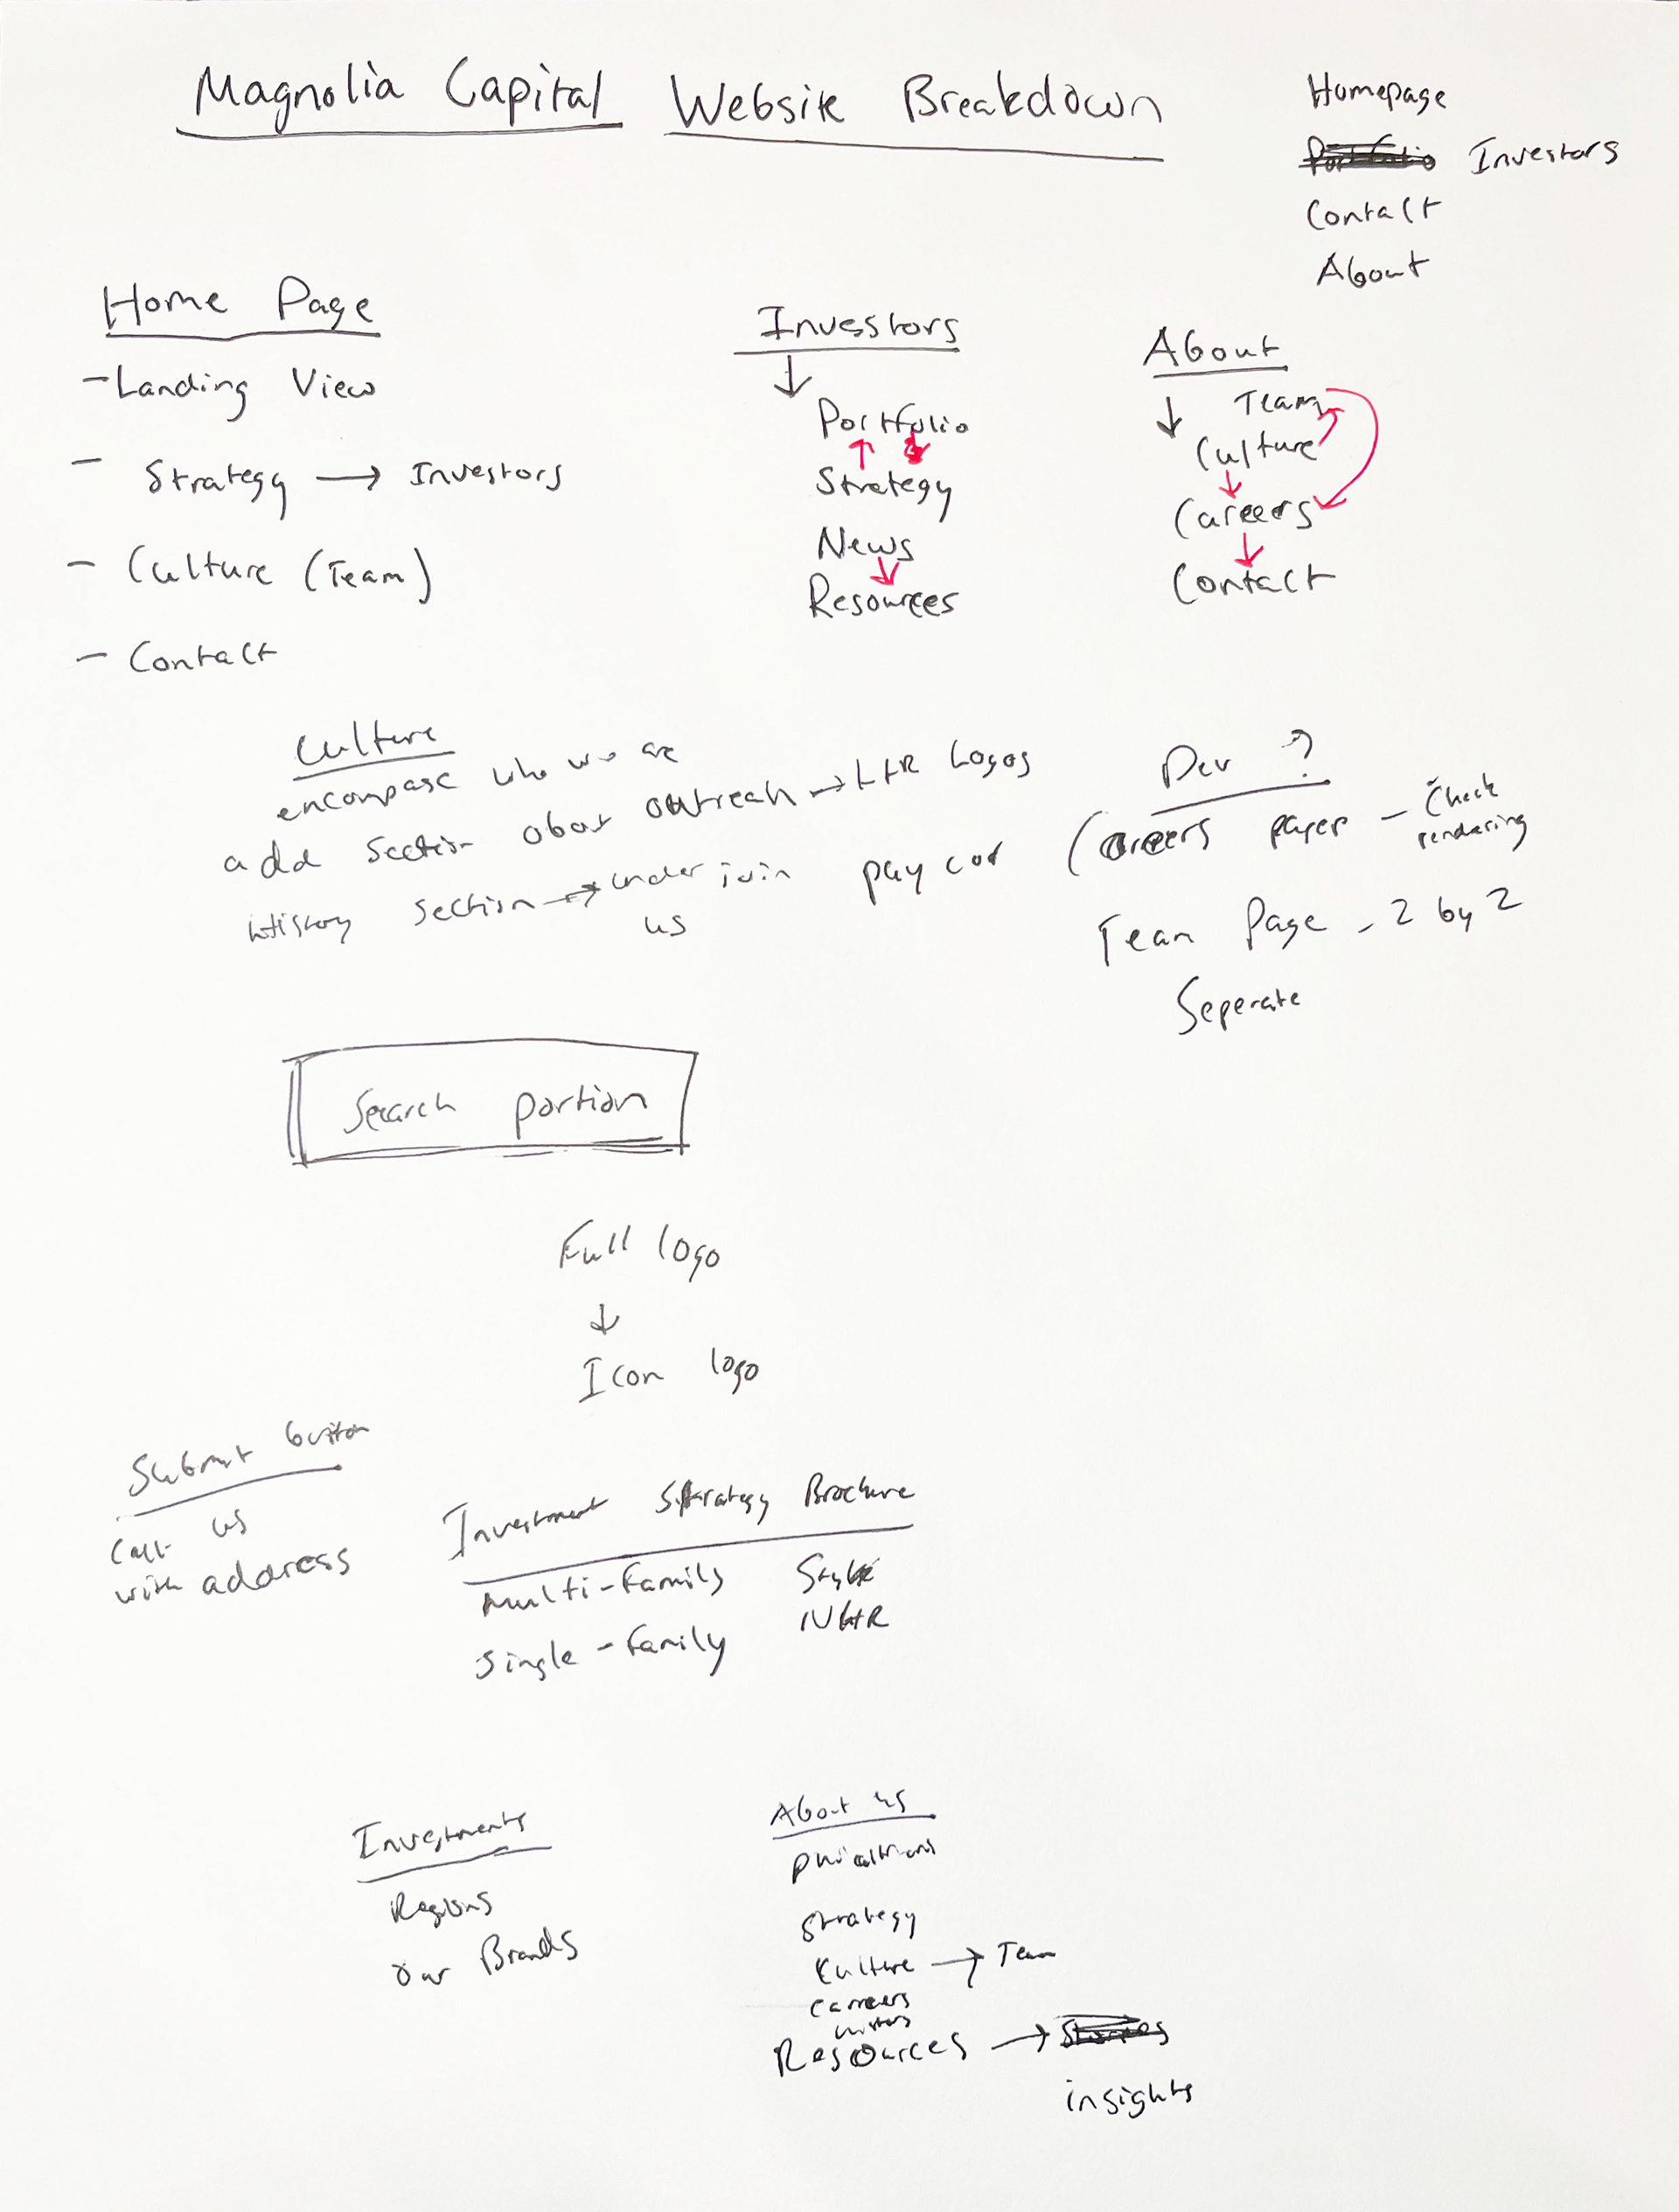 Magnolia Capital Website Breakdown
Homepage
Investors
Contact
About
Home Page
- Landing View
- Strategy → Investors
- Culture (Team)
- Contact
Investors
↓
Portfolio
Strategy
News
Resources
About
↓ Team
Culture
Careers
Contact
Culture
encompase who we are
add section about outreach → Logos
History section → under join
us
pay cor
Dev ?
Careers pages - Check
rendering
Team Page - 2 by 2
Seperate
Search portion
Full logo
↓
Icon logo
Submit button
Call us
with address
Investment Strategy Brochure
Multi-Family
Single-Family
Investments
Regions
Our Brands
About us
Strategy
Culture → Team
Careers
Resources →
insights